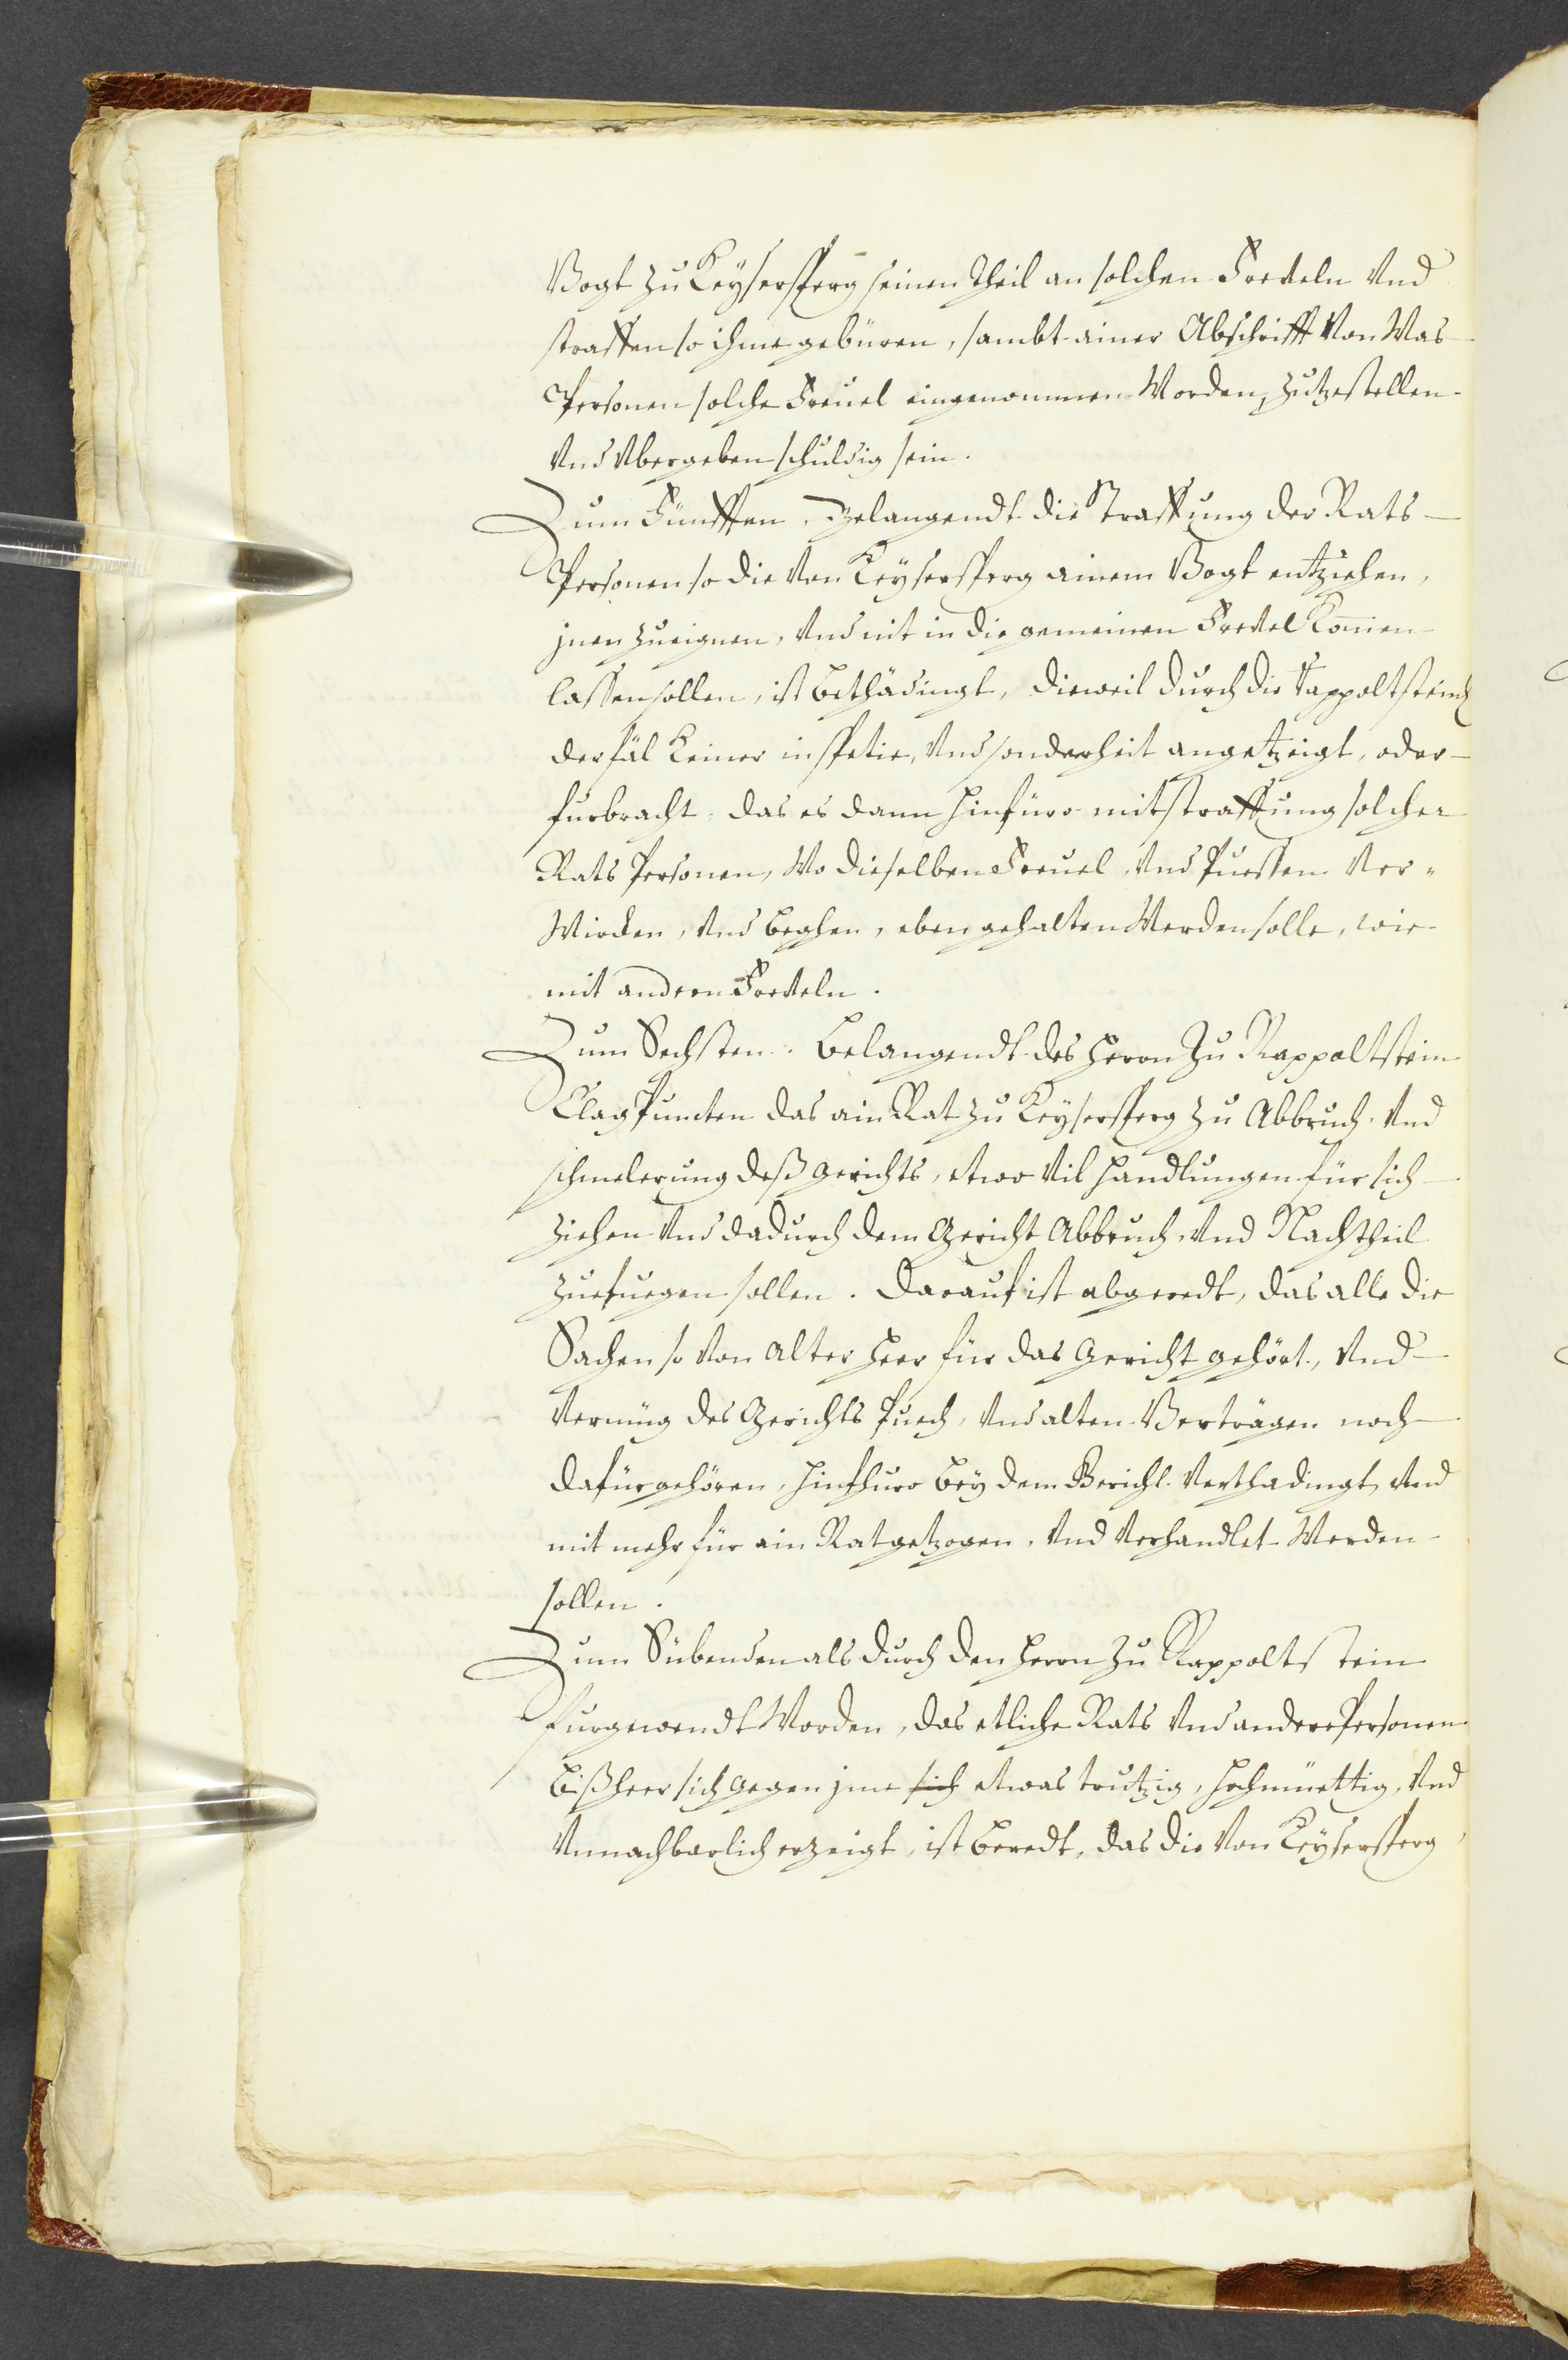 Vogt zu Keysersperg seinen Theil an solchen Freueln Vnd
straffen so ihme gebüren, sambt ainer Abschrifft Von Was
Personen solche Freuel eingenommen Worden, Zutzestellen
Vnd Vbergeben schuldig sein.
Zum Fünfften, belangendt die straffung der Rats
Personen so die Von Keysersperg ainem Vogt entziehen,
jnen zueignen, Vnd nit in die gemeinen Freuel Komen
lassen sollen, ist bethädingt, dieweil durch die
der fäl Keiner in spetie, Vnd sonderheit angetzeigt, oder
furbracht, das es dann hinfüro mit straffung solcher
Rats Personen, Wo dieselben Freuel, Vnd Puessen Ver-
Wircken, Vnd beghen, eben gehalten Werden solle, wie
mit andern Freueln.
Zum Sechsten. Belangendt des Herrn Zu Rappoltstein
Clag Puncten das ain Rat zu Keysersperg zu Abbruch Vnd
schmelerung deß Gerichts, etwo Vil Handlungen für sich
ziehen Vnd dadurch dem Gericht Abbruch, Vnd Nachtheil
zuefuegen sollen. Darauf ist abgeredt, das alle die
Sachen so Von Alter heer für das Gericht gehört, Vnd
Vermüg des Gerichts Puech, Vnd alten Verträgen noch
dafür gehören, hinfhuro bey dem Gericht Verthadingt, Vnd
nit mehr für ain Rat getzogen, Vnd Verhandlet Werden
sollen.
Zum Sübenden als durch den Herrn zu Rappoltstein
furgewendt Worden, das etliche Rats Vnd andere Personen
bißheer sich gegen jme sich etwas trutzig, hochmüettig, Vnd
Vnnachbarlich erzeigt, ist beredt, das die Von Keysersperg,